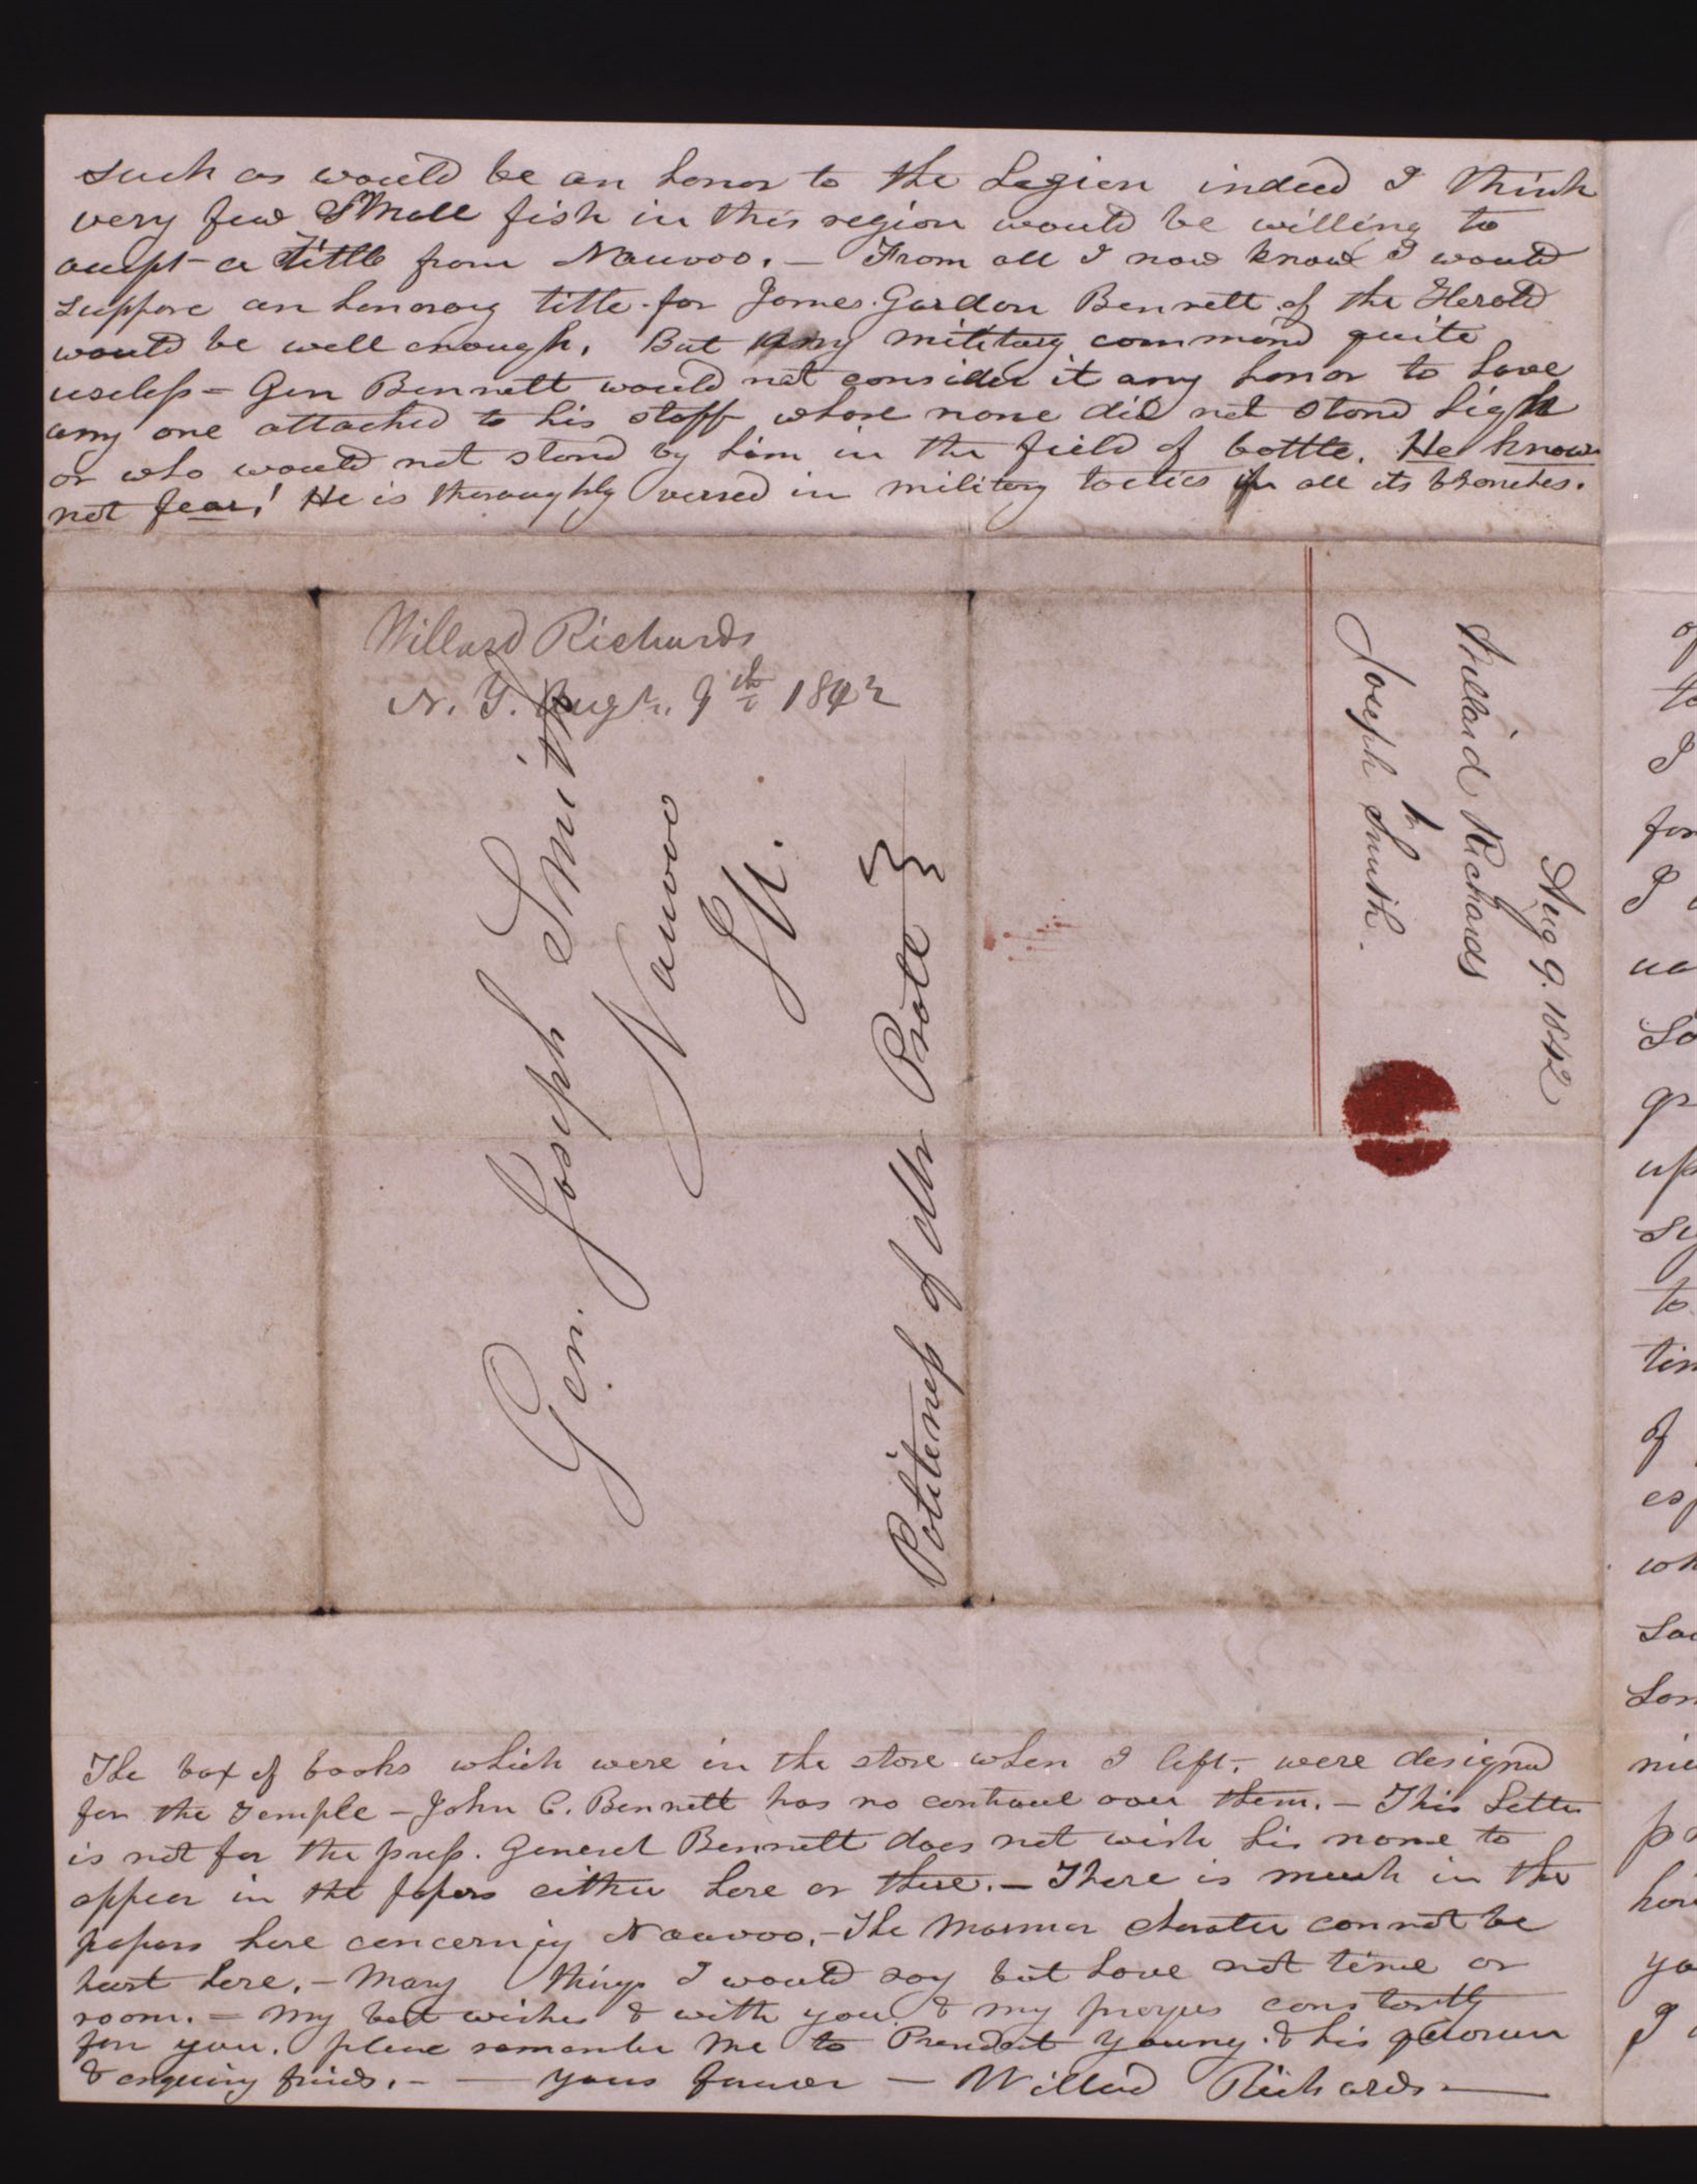 such as would be an honor to the Legion indeed I think
very few small fish in this region would be willing to
accept a title from Nauvoo. — From all I now know I would
suppose an honorary title for James Gordon Bennett of the Herald
would be well enough. But any military command quite
useless = Gen Bennett would not consider it any honor to have
any one attached to his staff whose name did not stand high
or who would not stand by him in the field of battle. He knows
not fear! He is thoroughly versed in military tactics in all its branches.
Willard Richards
N. Y. Augt. 9th 1842
Gen. Joseph Smith
Nauvoo
Ill.
Politeness of Mr Pratt
Aug 9. 1842
Willard Richards
to
Joseph Smith.
The box of books which were in the store when I left, were designed
for the Temple — John C. Bennett has no controul over them. — This Letter
is not for the press. General Bennett does not wish his name to
appear in the papers either here or there. — There is much in the
papers here concerning Nauvoo. — The Mormon character cannot be
hurt here. — Many things I would say but have not time or
room. = My best wishes & with you & my prayers constantly
for you. please remember me to President Young & his quorum
& enquiring friends. — — yours forever — Willard Richards —
of
to
I
for
I